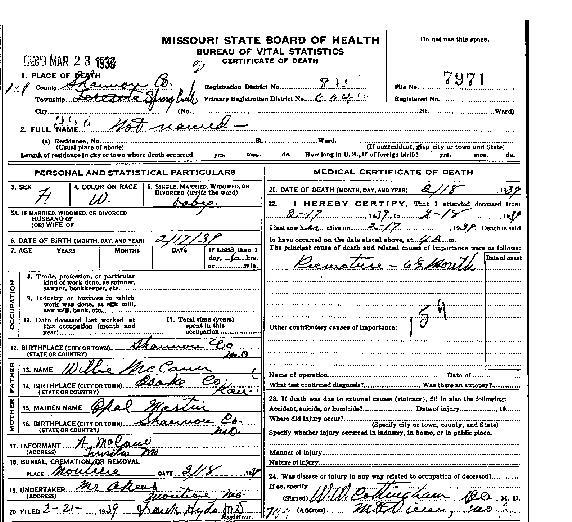 MISSOURI STATE BOARD OF HEALTH
BUREAU OF VITAL STATISTICS
CERTIFICATE OF DEATH
Do not use this space.
MAR 23
1. PLACE OF DEATH
County Shannon Co. Registration District No. File No. 7971
Township Primary Registration District No. Registered No.
City (No. St. Ward)
2. FULL NAME Not named
(a) Residence, No. St. Ward.
(Usual place of abode) (If nonresident, give city or town and State)
Length of residence in city or town where death occurred yrs. mos. ds. How long in U. S., if of foreign birth? yrs. mos. ds.
PERSONAL AND STATISTICAL PARTICULARS
3. SEX F
4. COLOR OR RACE W.
5. SINGLE, MARRIED, WIDOWED, OR DIVORCED (write the word)
5A. IF MARRIED, WIDOWED, OR DIVORCED
HUSBAND OF
(OR) WIFE OF
6. DATE OF BIRTH (MONTH, DAY, AND YEAR) 2/17/39
7. AGE YEARS MONTHS DAYS If LESS than 1 day, hrs. or min.
OCCUPATION
8. Trade, profession, or particular kind of work done, as spinner, sawyer, bookkeeper, etc.
9. Industry or business in which work was done, as silk mill, saw mill, bank, etc.
10. Date deceased last worked at this occupation (month and year)
11. Total time (years) spent in this occupation
12. BIRTHPLACE (CITY OR TOWN) Shannon Co
(STATE OR COUNTRY) Mo
FATHER
13. NAME Willie
14. BIRTHPLACE (CITY OR TOWN) Co.
(STATE OR COUNTRY)
MOTHER
15. MAIDEN NAME Opal Martin
16. BIRTHPLACE (CITY OR TOWN) Shannon Co.
(STATE OR COUNTRY) Mo.
17. INFORMANT A.
(ADDRESS) Mo
18. BURIAL, CREMATION, OR REMOVAL
PLACE DATE 2/18 39
19. UNDERTAKER
(ADDRESS) Mo
20. FILED 2-21- 1939 Frank Hyde M.D.
Registrar.
MEDICAL CERTIFICATE OF DEATH
21. DATE OF DEATH (MONTH, DAY, AND YEAR) 2/18 1939
22. I HEREBY CERTIFY, That I attended deceased from
2-17 1939, to 2-18 1939
I last saw alive on 2-17 1939. Death is said
to have occurred on the date stated above, at m.
The principal cause of death and related causes of importance were as follows:
Date of onset
Premature - 6½ Month
159
Other contributory causes of importance:
Name of operation Date of
What test confirmed diagnosis? Was there an autopsy?
23. If death was due to external causes (violence), fill in also the following:
Accident, suicide, or homicide? Date of injury 19
Where did injury occur?
(Specify city or town, county, and State)
Specify whether injury occurred in industry, in home, or in public place.
Manner of injury
Nature of injury
24. Was disease or injury in any way related to occupation of deceased?
If so, specify
(Signed) W.W. Cottingham M. D.
(Address) Mo